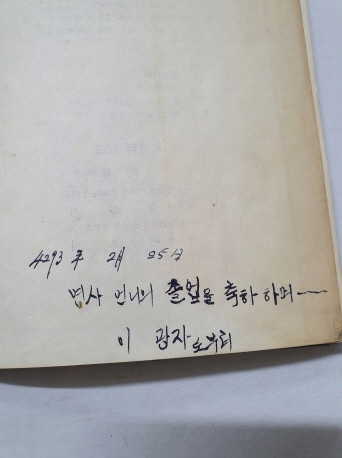 4293 年 2月 25日
명사 언니의 졸업을 축하 하며—
이 광자 드리